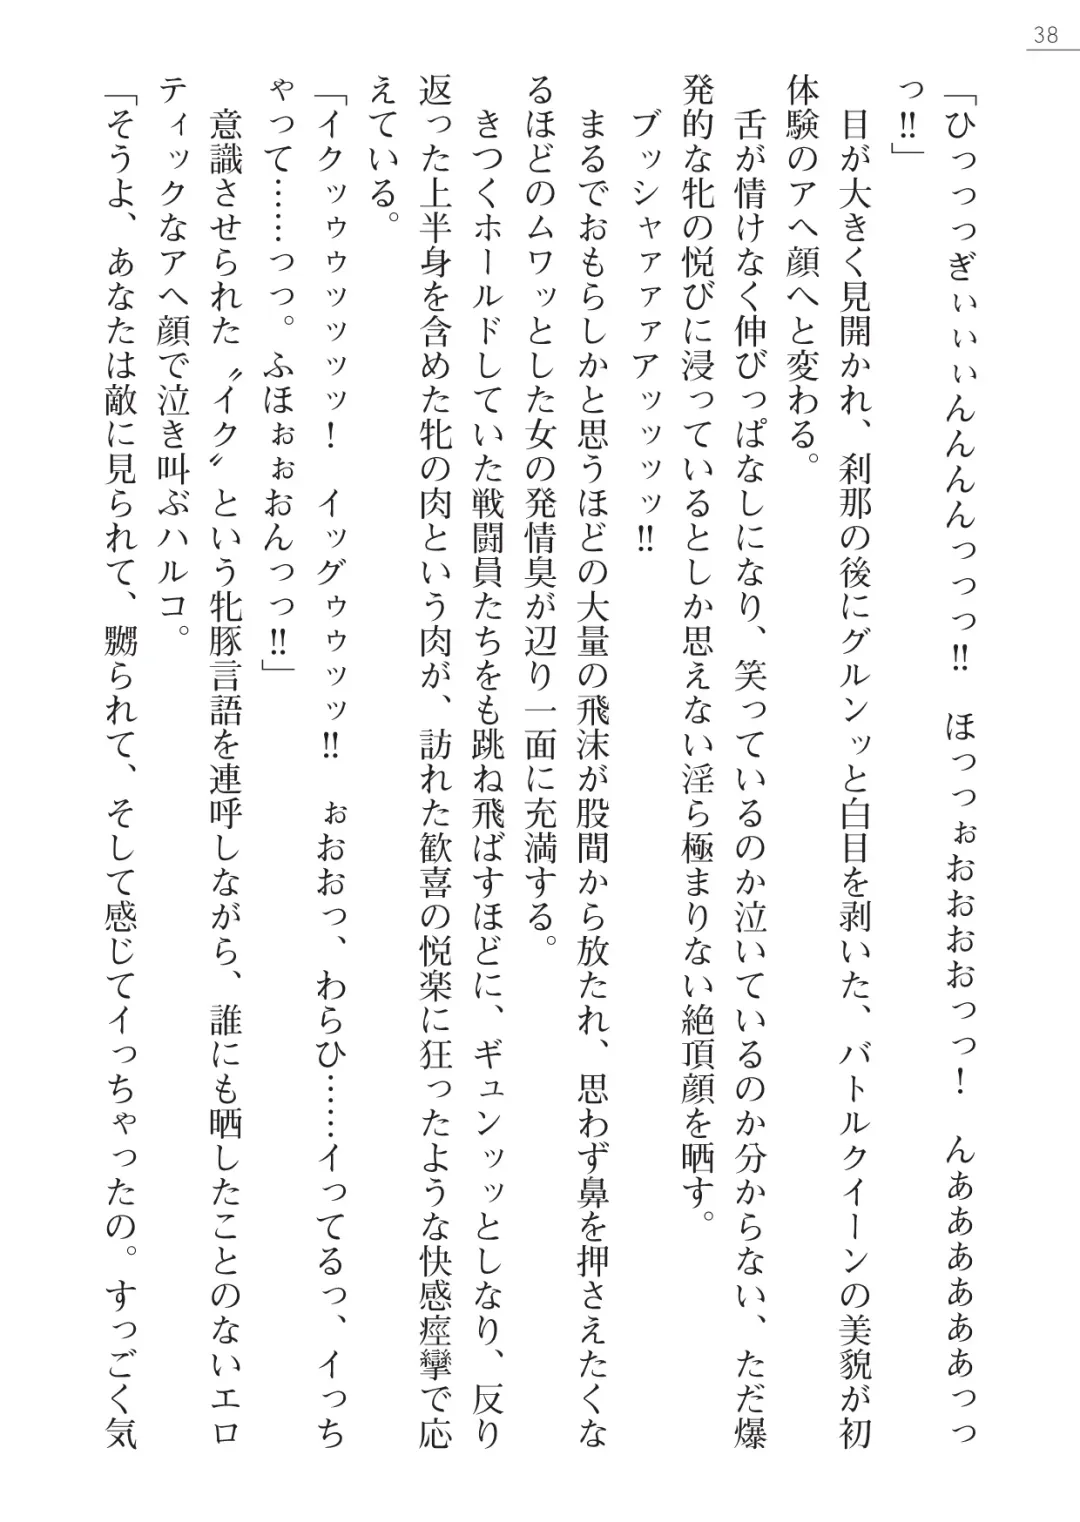 38
「ひっっっぎぃぃぃんんんんっっっ‼　ほっっぉおおおおっっ！　んあああああああっっ
っ‼」
　目が大きく見開かれ、刹那の後にグルンッと白目を剥いた、バトルクイーンの美貌が初
体験のアヘ顔へと変わる。
　舌が情けなく伸びっぱなしになり、笑っているのか泣いているのか分からない、ただ爆
発的な牝の悦びに浸っているとしか思えない淫ら極まりない絶頂顔を晒す。
　ブッシャァァァアッッッッ‼
　まるでおもらしかと思うほどの大量の飛沫が股間から放たれ、思わず鼻を押さえたくな
るほどのムワッとした女の発情臭が辺り一面に充満する。
　きつくホールドしていた戦闘員たちをも跳ね飛ばすほどに、ギュンッッとしなり、反り
返った上半身を含めた牝の肉という肉が、訪れた歓喜の悦楽に狂ったような快感痙攣で応
えている。
「イクッゥゥッッッッ！　イッグゥゥッッ‼　ぉおおっ、わらひ……イってるっ、イっち
ゃって……っっ。ふほぉぉおんっっ‼」
　意識させられた〝イク〟という牝豚言語を連呼しながら、誰にも晒したことのないエロ
ティックなアヘ顔で泣き叫ぶハルコ。
「そうよ、あなたは敵に見られて、嬲られて、そして感じてイっちゃったの。すっごく気